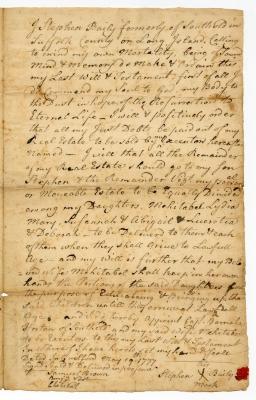 I Stephen Baily formerly of Southold in
Suffolk County on Long Island, Calling
to mind my own Mortality being of sound
Mind & Memory do Make & Ordain this
my Last Will & Testament - first of all I
do Commend my Soul to God my Body to
the Dust in hopes of the Resurrection to
Eternal Life - I will & positively order
that all my Just Debts be paid out of my
Real Estate to be sold by my Executors hereafter
Named - I will that all the Remainder
of my Real Estate should go to my Son
Stephen & the Remainder of my
or Moveable Estate to be Equally Divided
among my Daughters, Mehitabel, Lydia
Mary, Susannah & Abigail &
& Deborah - to be Delivered to them Each
of them when they shall arive to Lawfull
Age - and my will is further that my
wife Mehitabel shall keep in her own
hands the Portions of the said Daughters for
the purpose of Educating & bringing up the
Children untill they arive at Lawfull
Age - and do hereby Appoint
of Southold and my said wife Mehitabel
to be Executors to this my Last Will & Testament
In witness whereof I have hereunto set my hand & Seale
May 1777
Samuel Brown
Stephen X Baily
mark